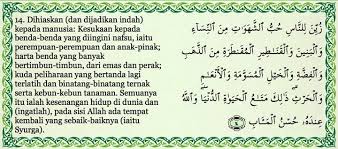 14. Dihiaskan (dan dijadikan indah)
kepada manusia: Kesukaan kepada
benda-benda yang diingini nafsu, iaitu
perempuan-perempuan dan anak-pinak;
harta benda yang banyak
bertimbun-timbun, dari emas dan perak;
kuda peliharaan yang bertanda lagi
terlatih dan binatang-binatang ternak
serta kebun-kebun tanaman. Semuanya
itu ialah kesenangan hidup di dunia dan
(ingatlah), pada sisi Allah ada tempat
kembali yang sebaik-baiknya (iaitu
Syurga).
زُيِّنَ لِلنَّاسِ حُبُّ الشَّهَوَاتِ مِنَ النِّسَاءِ
وَالْبَنِينَ وَالْقَنَاطِيرِ الْمُقَنطَرَةِ مِنَ الذَّهَبِ
وَالْفِضَّةِ وَالْخَيْلِ الْمُسَوَّمَةِ وَالْأَنْعَامِ
وَالْحَرْثِ ذَٰلِكَ مَتَاعُ الْحَيَاةِ الدُّنْيَا وَاللَّهُ
عِندَهُ حُسْنُ الْمَآبِ